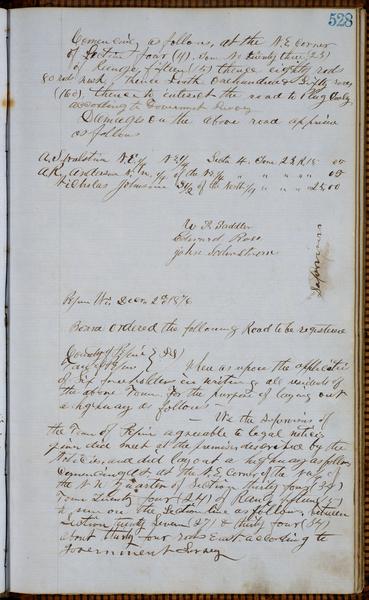 528
Comencing as follows, at the N.E. Corner
of Section four (4), Town No twenty three (23)
of Range fifteen (15) thence eighty rods
80 rods west, thence South one hundred & sixty rods
(160), thence to intersect the road to
according to Government Survey
Damages on the above road apprise
as follows
N.E. 1/4 N.E. 1/4 Sect. 4. Town 23 R 15 00
Anderson N.W. 1/4 of the N.E. 1/4 " " " " " 00
Nicholas Johnson of the North 1/4 " " " " 25,00
Edward Ross
John
Supervisors
Dec. 2d 1876
Board ordered the following Road to be registered
County of } SS
Town of } When as upon the application
of Six freeholders in writing all residents of
the above Town for the purpose of laying out
a highway as follows
— We the Supervisors of
the Town of agreeable to legal notice
given did meet at the premises described by the
and did lay out a highway as follows
Commencing at the N.E. Corner of the
the N.W. quarter of Section thirty four (34)
Town Twenty four (24) of Range fifteen (15)
to run on the Section line as follows, between
Section twenty Seven (27) & thirty four (34)
about thirty four rods East according to
Government Survey